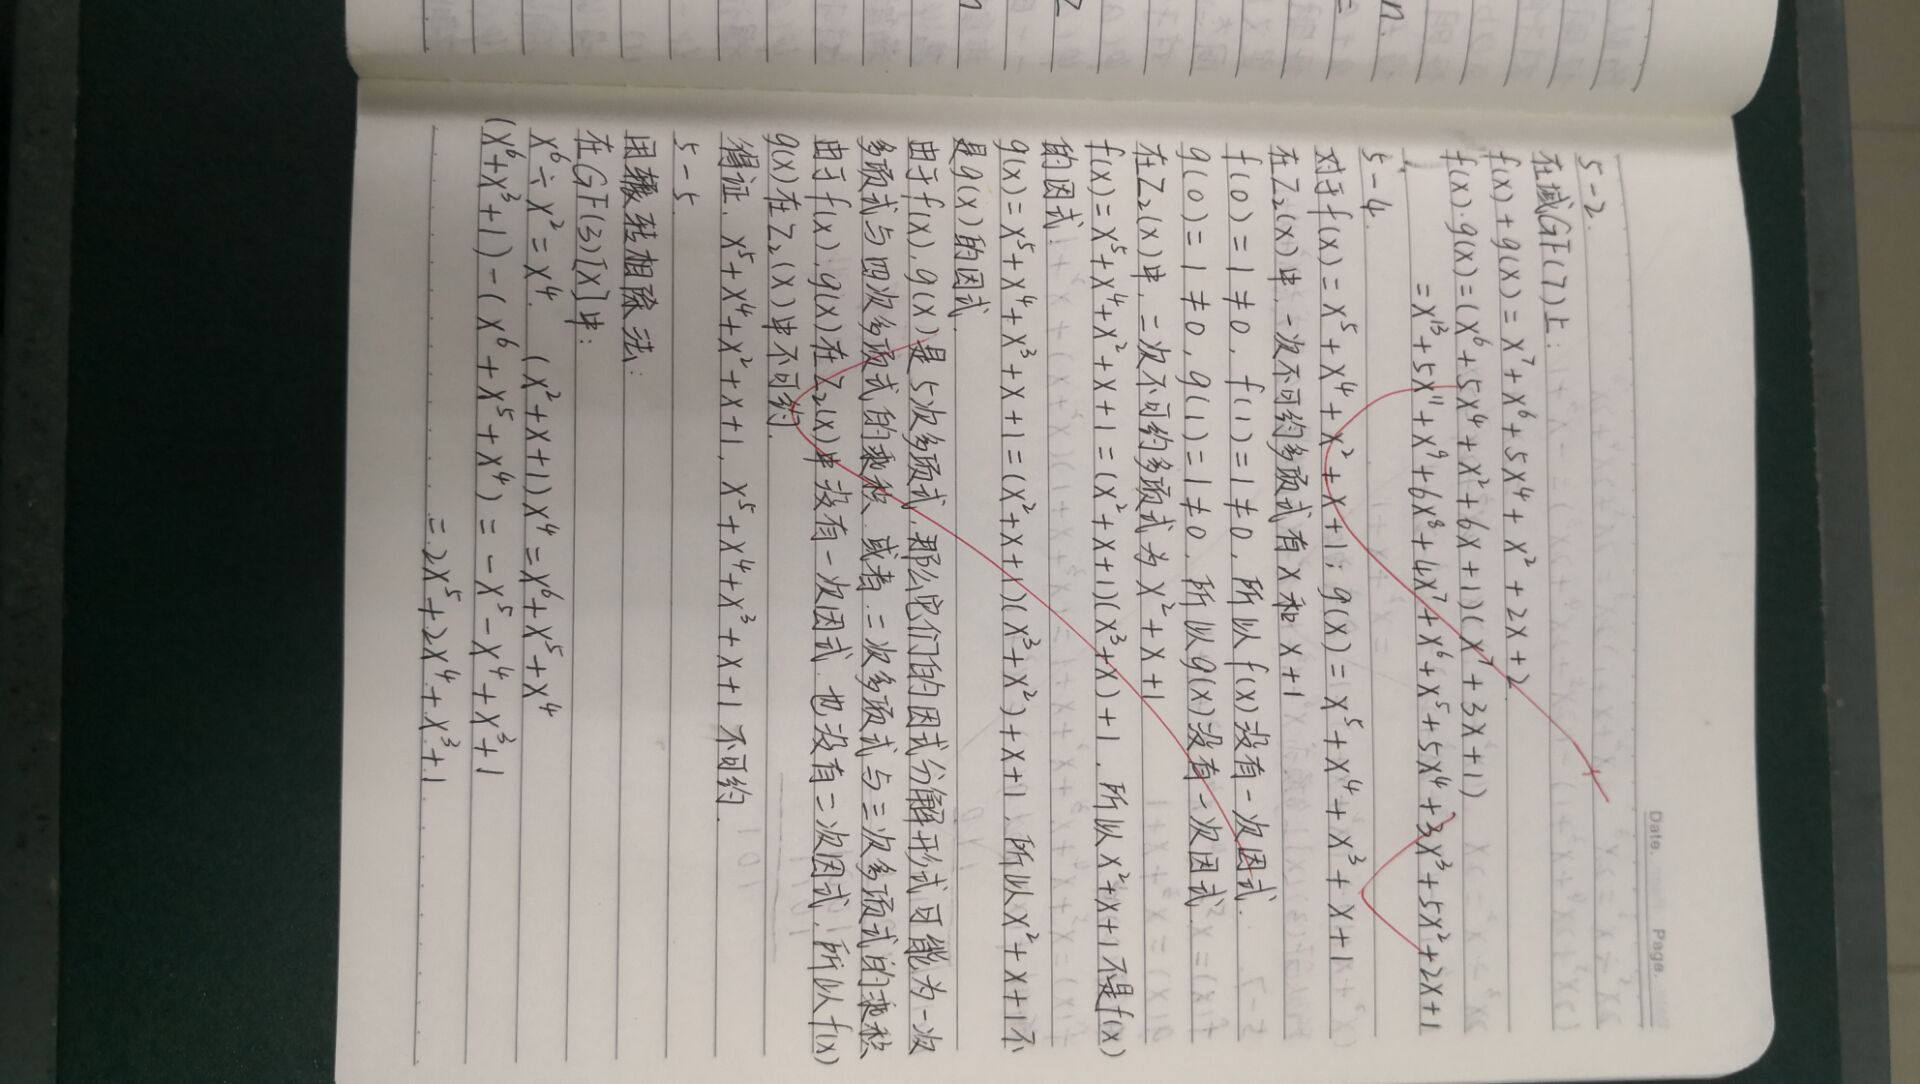 Date. Page.
5-2.
在域GF(7)上:
f(x)+g(x)=x⁷+x⁶+5x⁴+x²+2x+2
f(x)·g(x)=(x⁶+5x⁴+x²+6x+1)(x⁷+3x+1)
=x¹³+5x¹¹+x⁹+6x⁸+4x⁷+x⁶+x⁵+5x⁴+3x³+5x²+2x+1
5-4.
对于f(x)=x⁵+x⁴+x²+x+1; g(x)=x⁵+x⁴+x³+x+1
在Z₂(x)中,一次不可约多项式有x和x+1
f(0)=1≠0, f(1)=1≠0, 所以f(x)没有一次因式.
g(0)=1≠0, g(1)=1≠0, 所以g(x)没有一次因式
在Z₂(x)中,二次不可约多项式为x²+x+1
f(x)=x⁵+x⁴+x²+x+1=(x²+x+1)(x³+x)+1, 所以x²+x+1不是f(x)
的因式.
g(x)=x⁵+x⁴+x³+x+1=(x²+x+1)(x³+x²)+x+1, 所以x²+x+1不
是g(x)的因式.
由于f(x),g(x)是5次多项式,那么它们的因式分解形式可能为一次
多项式与四次多项式的乘积,或者二次多项式与三次多项式的乘积
由于f(x),g(x)在Z₂(x)中没有一次因式,也没有二次因式,所以f(x)
g(x)在Z₂(x)中不可约.
得证. x⁵+x⁴+x²+x+1, x⁵+x⁴+x³+x+1不可约.
5-5
用辗转相除法:
在GF(3)[x]中:
x⁶÷x²=x⁴. (x²+x+1)x⁴=x⁶+x⁵+x⁴
(x⁶+x³+1)-(x⁶+x⁵+x⁴)=-x⁵-x⁴+x³+1
=2x⁵+2x⁴+x³+1